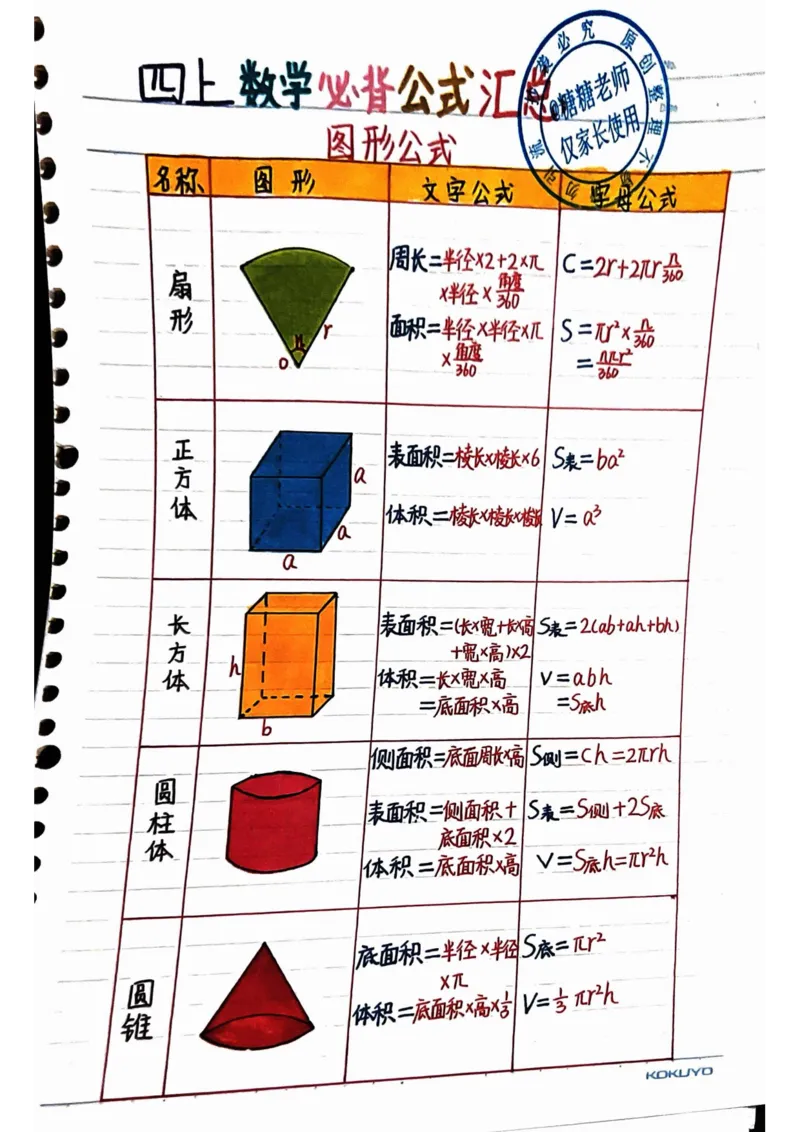 四上数学必背公式汇总
图形公式
@糖糖老师
仅家长使用
名称 图形 文字公式 字母公式
扇形
r
n
o
周长=半径×2+2×π
×半径×角度/360
面积=半径×半径×π
×角度/360
C=2r+2πr n/360
S=πr²×n/360
=nπr²/360
正方体
a
a
a
表面积=棱长×棱长×6
体积=棱长×棱长×棱长
S表=6a²
V=a³
长方体
h
b
表面积=(长×宽+长×高
+宽×高)×2
体积=长×宽×高
=底面积×高
S表=2(ab+ah+bh)
V=abh
=S底h
圆柱体
侧面积=底面周长×高
表面积=侧面积+
底面积×2
体积=底面积×高
S侧=Ch=2πrh
S表=S侧+2S底
V=S底h=πr²h
圆锥
底面积=半径×半径
×π
体积=底面积×高×1/3
S底=πr²
V=1/3 πr²h
KOKUYO